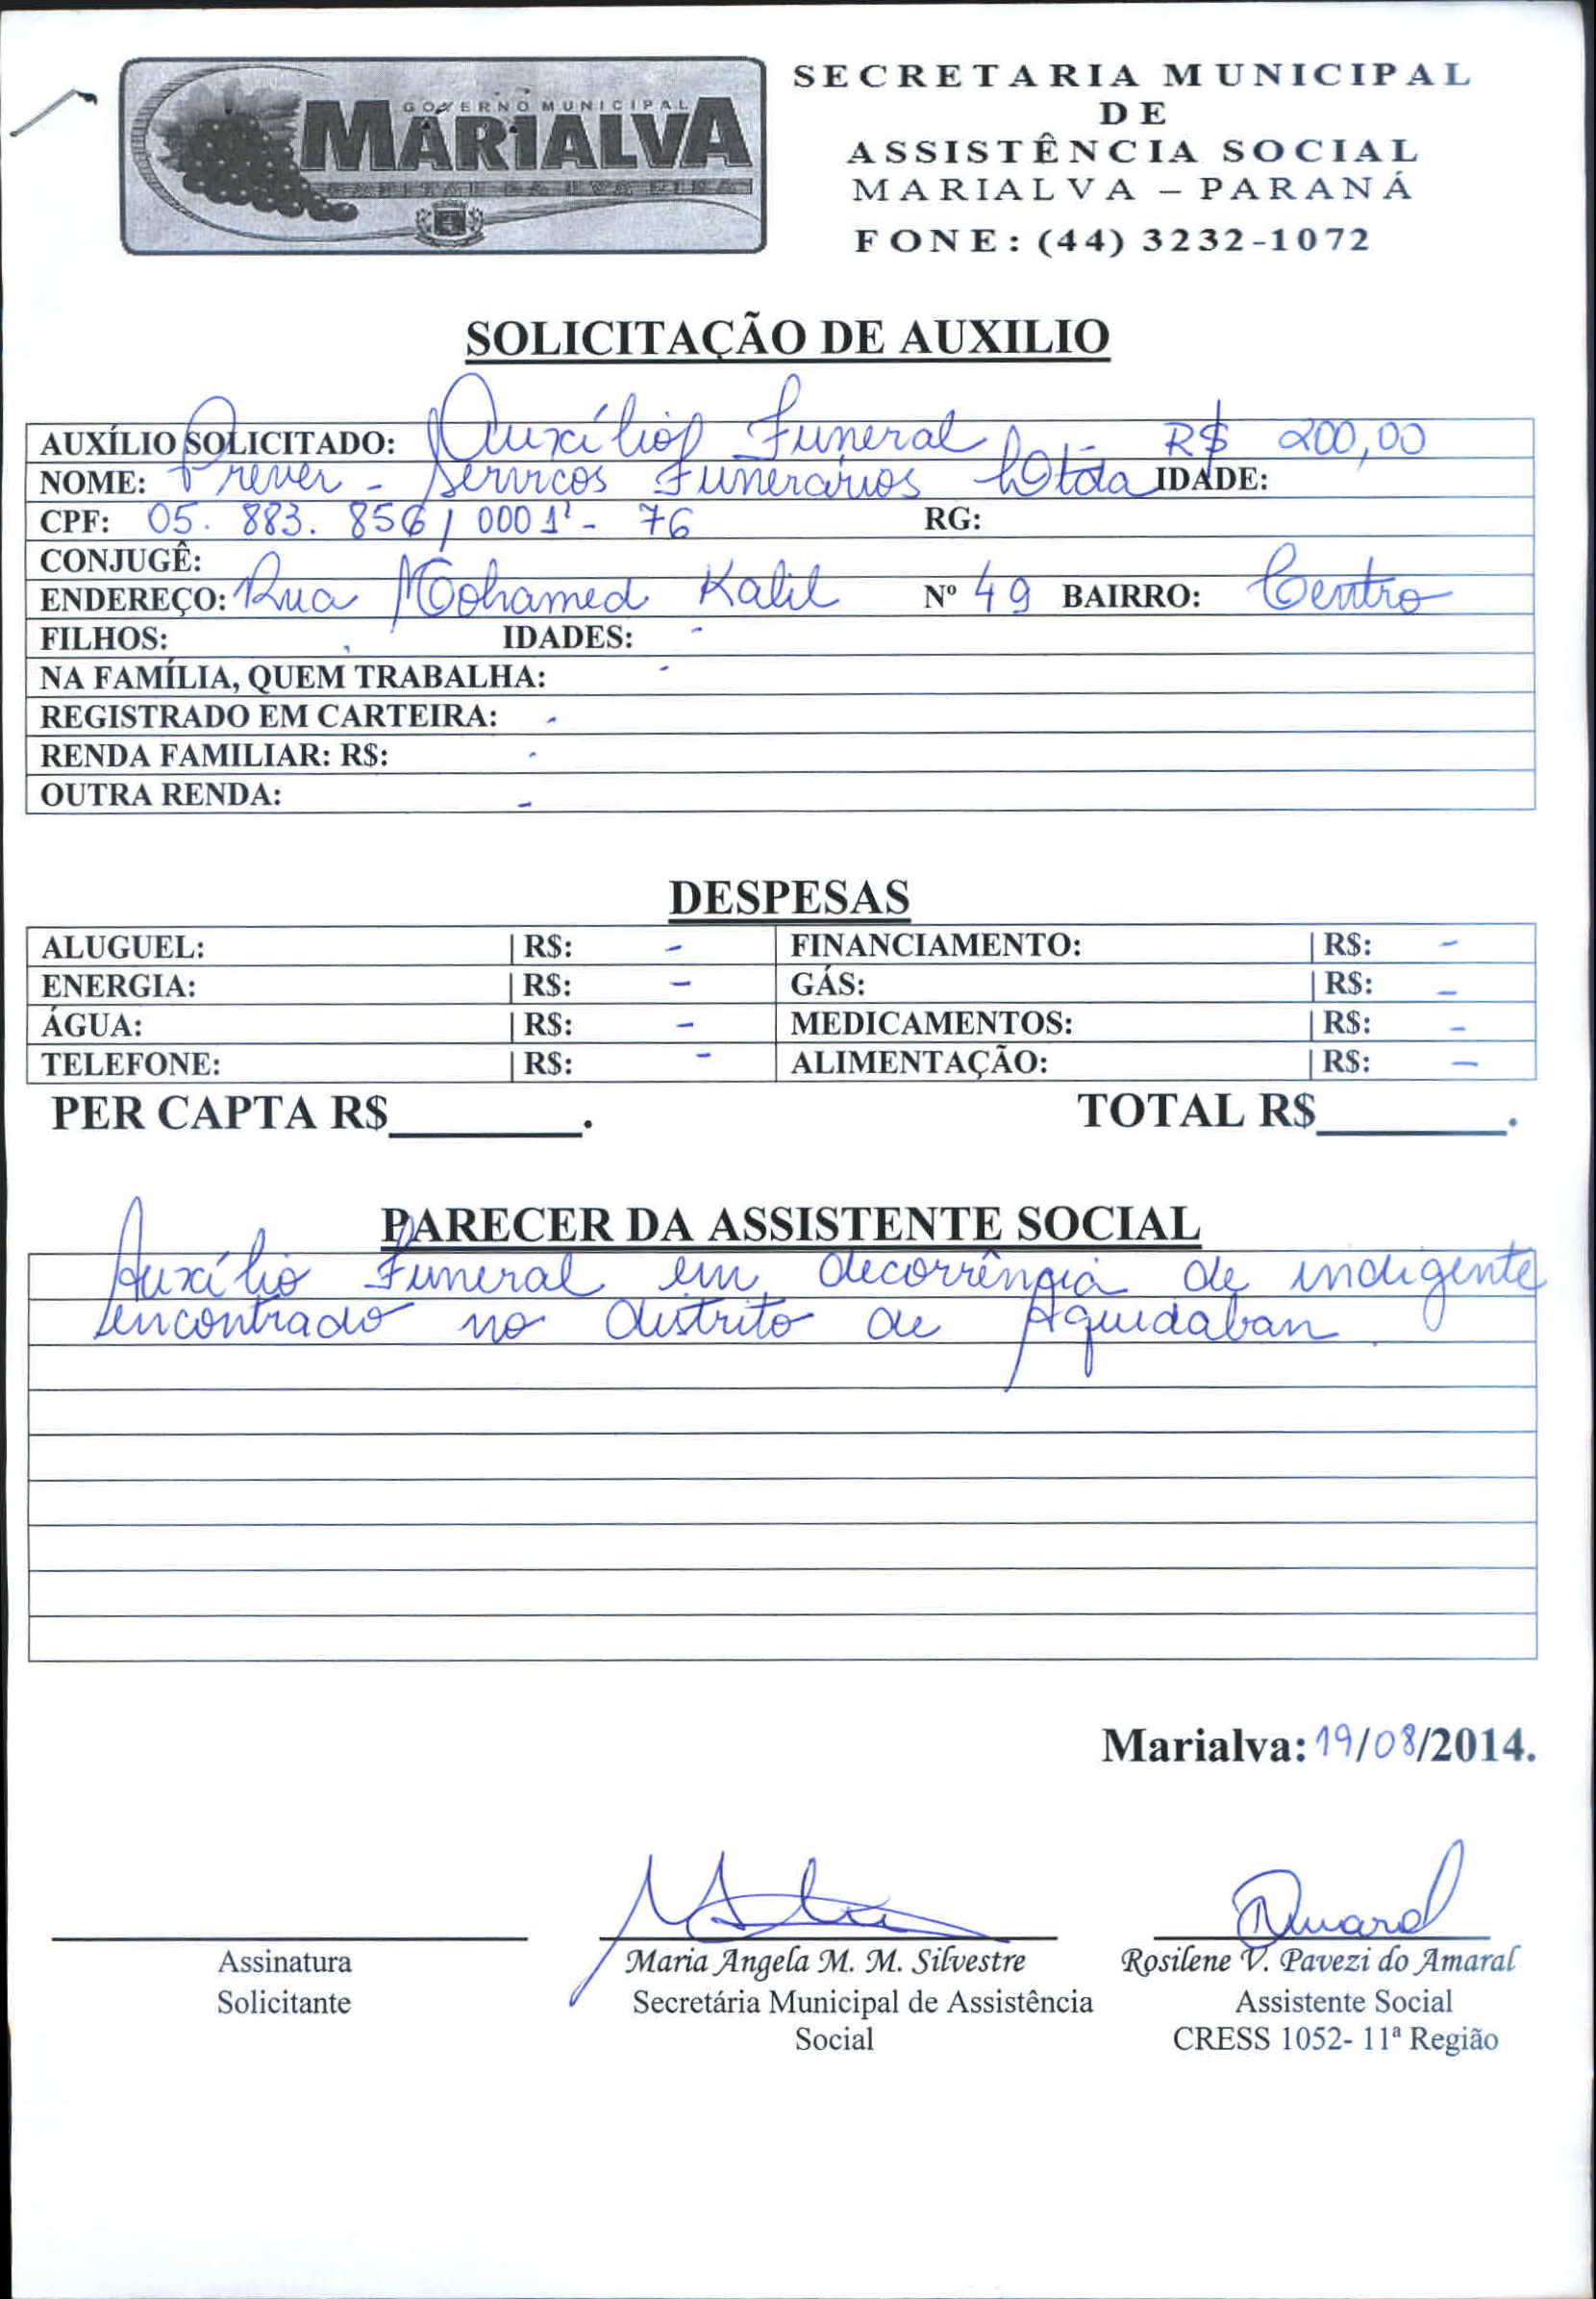 GOVERNO MUNICIPAL
MARIALVA
CAPITAL DA UVA FINA
SECRETARIA MUNICIPAL
DE
ASSISTÊNCIA SOCIAL
MARIALVA – PARANÁ
FONE: (44) 3232-1072
SOLICITAÇÃO DE AUXILIO
AUXÍLIO SOLICITADO: Auxílio Funeral R$ 200,00
NOME: Prever - Servicos Funerários Ltda IDADE:
CPF: 05. 883. 856/0001- 76 RG:
CONJUGÊ:
ENDEREÇO: Rua Mohamed Kalil Nº 49 BAIRRO: Centro
FILHOS: IDADES: -
NA FAMÍLIA, QUEM TRABALHA: -
REGISTRADO EM CARTEIRA: -
RENDA FAMILIAR: R$: -
OUTRA RENDA: -
DESPESAS
ALUGUEL: | R$: - FINANCIAMENTO: | R$: -
ENERGIA: | R$: - GÁS: | R$: -
ÁGUA: | R$: - MEDICAMENTOS: | R$: -
TELEFONE: | R$: - ALIMENTAÇÃO: | R$: -
PER CAPTA R$________. TOTAL R$________.
PARECER DA ASSISTENTE SOCIAL
Auxílio Funeral em decorrência de indigente
encontrado no distrito de Aquidaban
Marialva: 19/08/2014.
Assinatura
Solicitante
Maria Angela M. M. Silvestre
Secretária Municipal de Assistência
Social
Rosilene V. Pavezi do Amaral
Assistente Social
CRESS 1052- 11ª Região